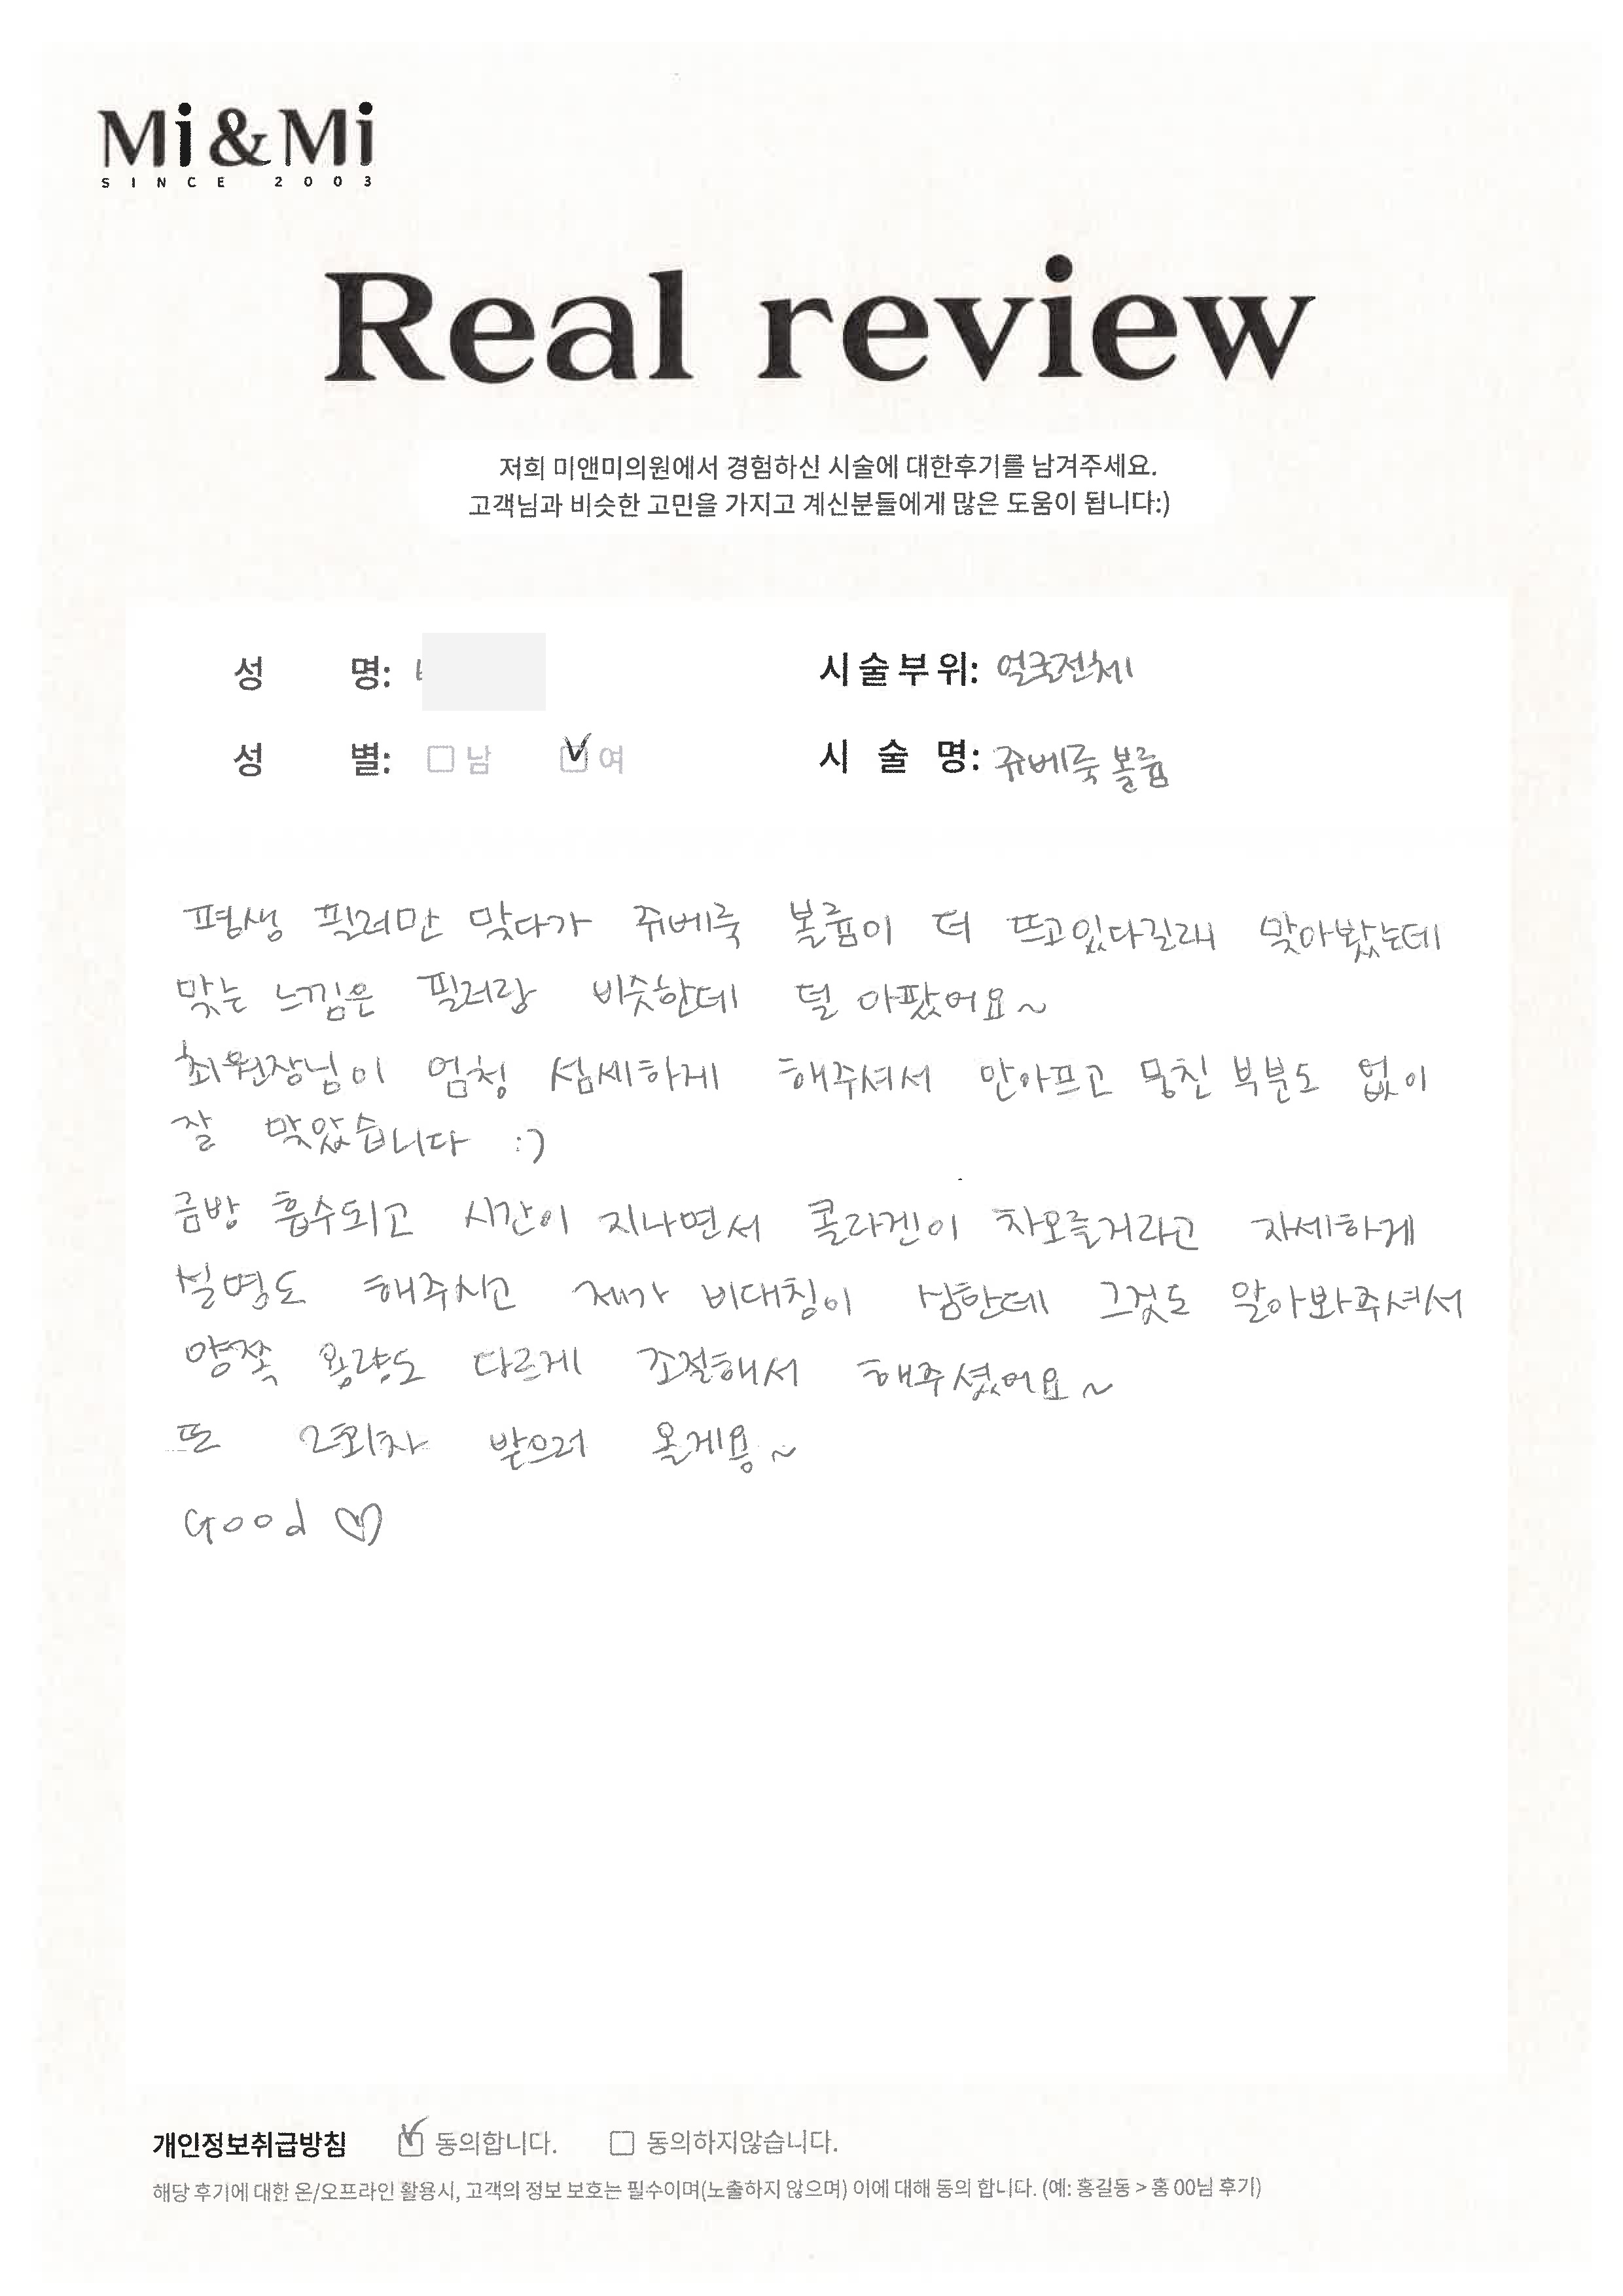 Mi&Mi
SINCE 2003
Real review
저희 미앤미의원에서 경험하신 시술에 대한후기를 남겨주세요.
고객님과 비슷한 고민을 가지고 계신분들에게 많은 도움이 됩니다:)
성 명:
시술부위: 얼굴전체
성 별: 남 여
시 술 명: 쥬베룩 볼륨
평생 필러만 맞다가 쥬베룩 볼륨이 더 뜨고있다길래 맞아봤는데
맞는 느낌은 필러랑 비슷한데 덜 아팠어요~
최원장님이 엄청 섬세하게 해주셔서 안아프고 뭉친 부분도 없이
잘 맞았습니다 :)
금방 흡수되고 시간이 지나면서 콜라겐이 차오를거라고 자세하게
설명도 해주시고 제가 비대칭이 심한데 그것도 알아봐주셔서
양쪽 용량도 다르게 조절해서 해주셨어요~
또 2회차 받으러 올게용~
Good ♡
개인정보취급방침 동의합니다. 동의하지않습니다.
해당 후기에 대한 온/오프라인 활용시, 고객의 정보 보호는 필수이며(노출하지 않으며) 이에 대해 동의 합니다. (예: 홍길동 > 홍 00님 후기)